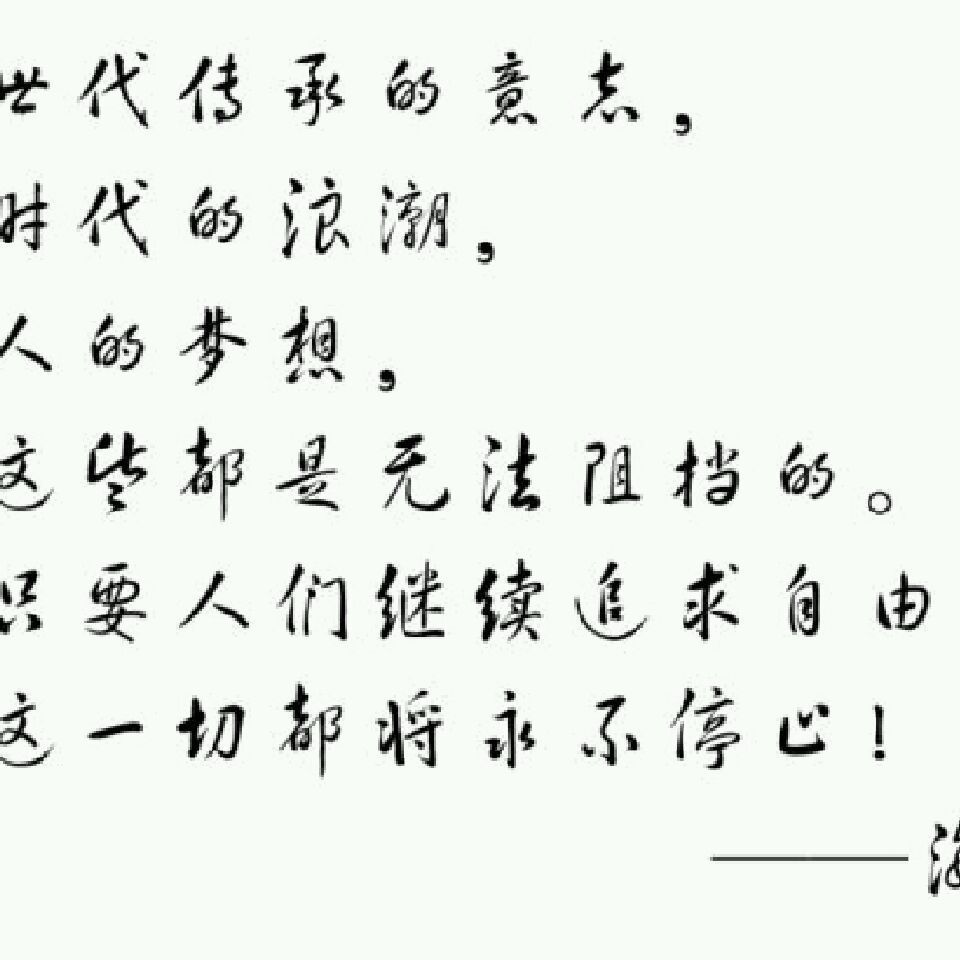 世代传承的意志，
时代的浪潮，
人的梦想，
这些都是无法阻挡的。
只要人们继续追求自由
这一切都将永不停止！
——海